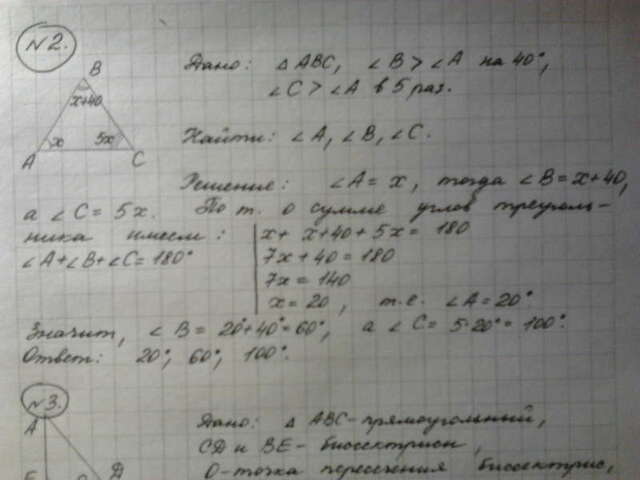 №2.
Дано: △ABC, ∠B > ∠A на 40°,
∠C > ∠A в 5 раз.
B
x+40
x
5x
A
C
Найти: ∠A, ∠B, ∠C.
Решение: ∠A = x, тогда ∠B = x+40,
а ∠C = 5x. По т. о сумме углов треуголь-
ника имеем:
∠A+∠B+∠C=180°
x+ x+40+5x= 180
7x+40=180
7x=140
x=20, т.е. ∠A=20°
Значит, ∠B= 20°+40°=60°, а ∠C= 5·20°= 100°.
Ответ: 20°, 60°, 100°.
№3.
Дано: △ ABC-прямоугольный,
CD и BE - биссектрисы,
O-точка пересечения биссектрис,
A
D